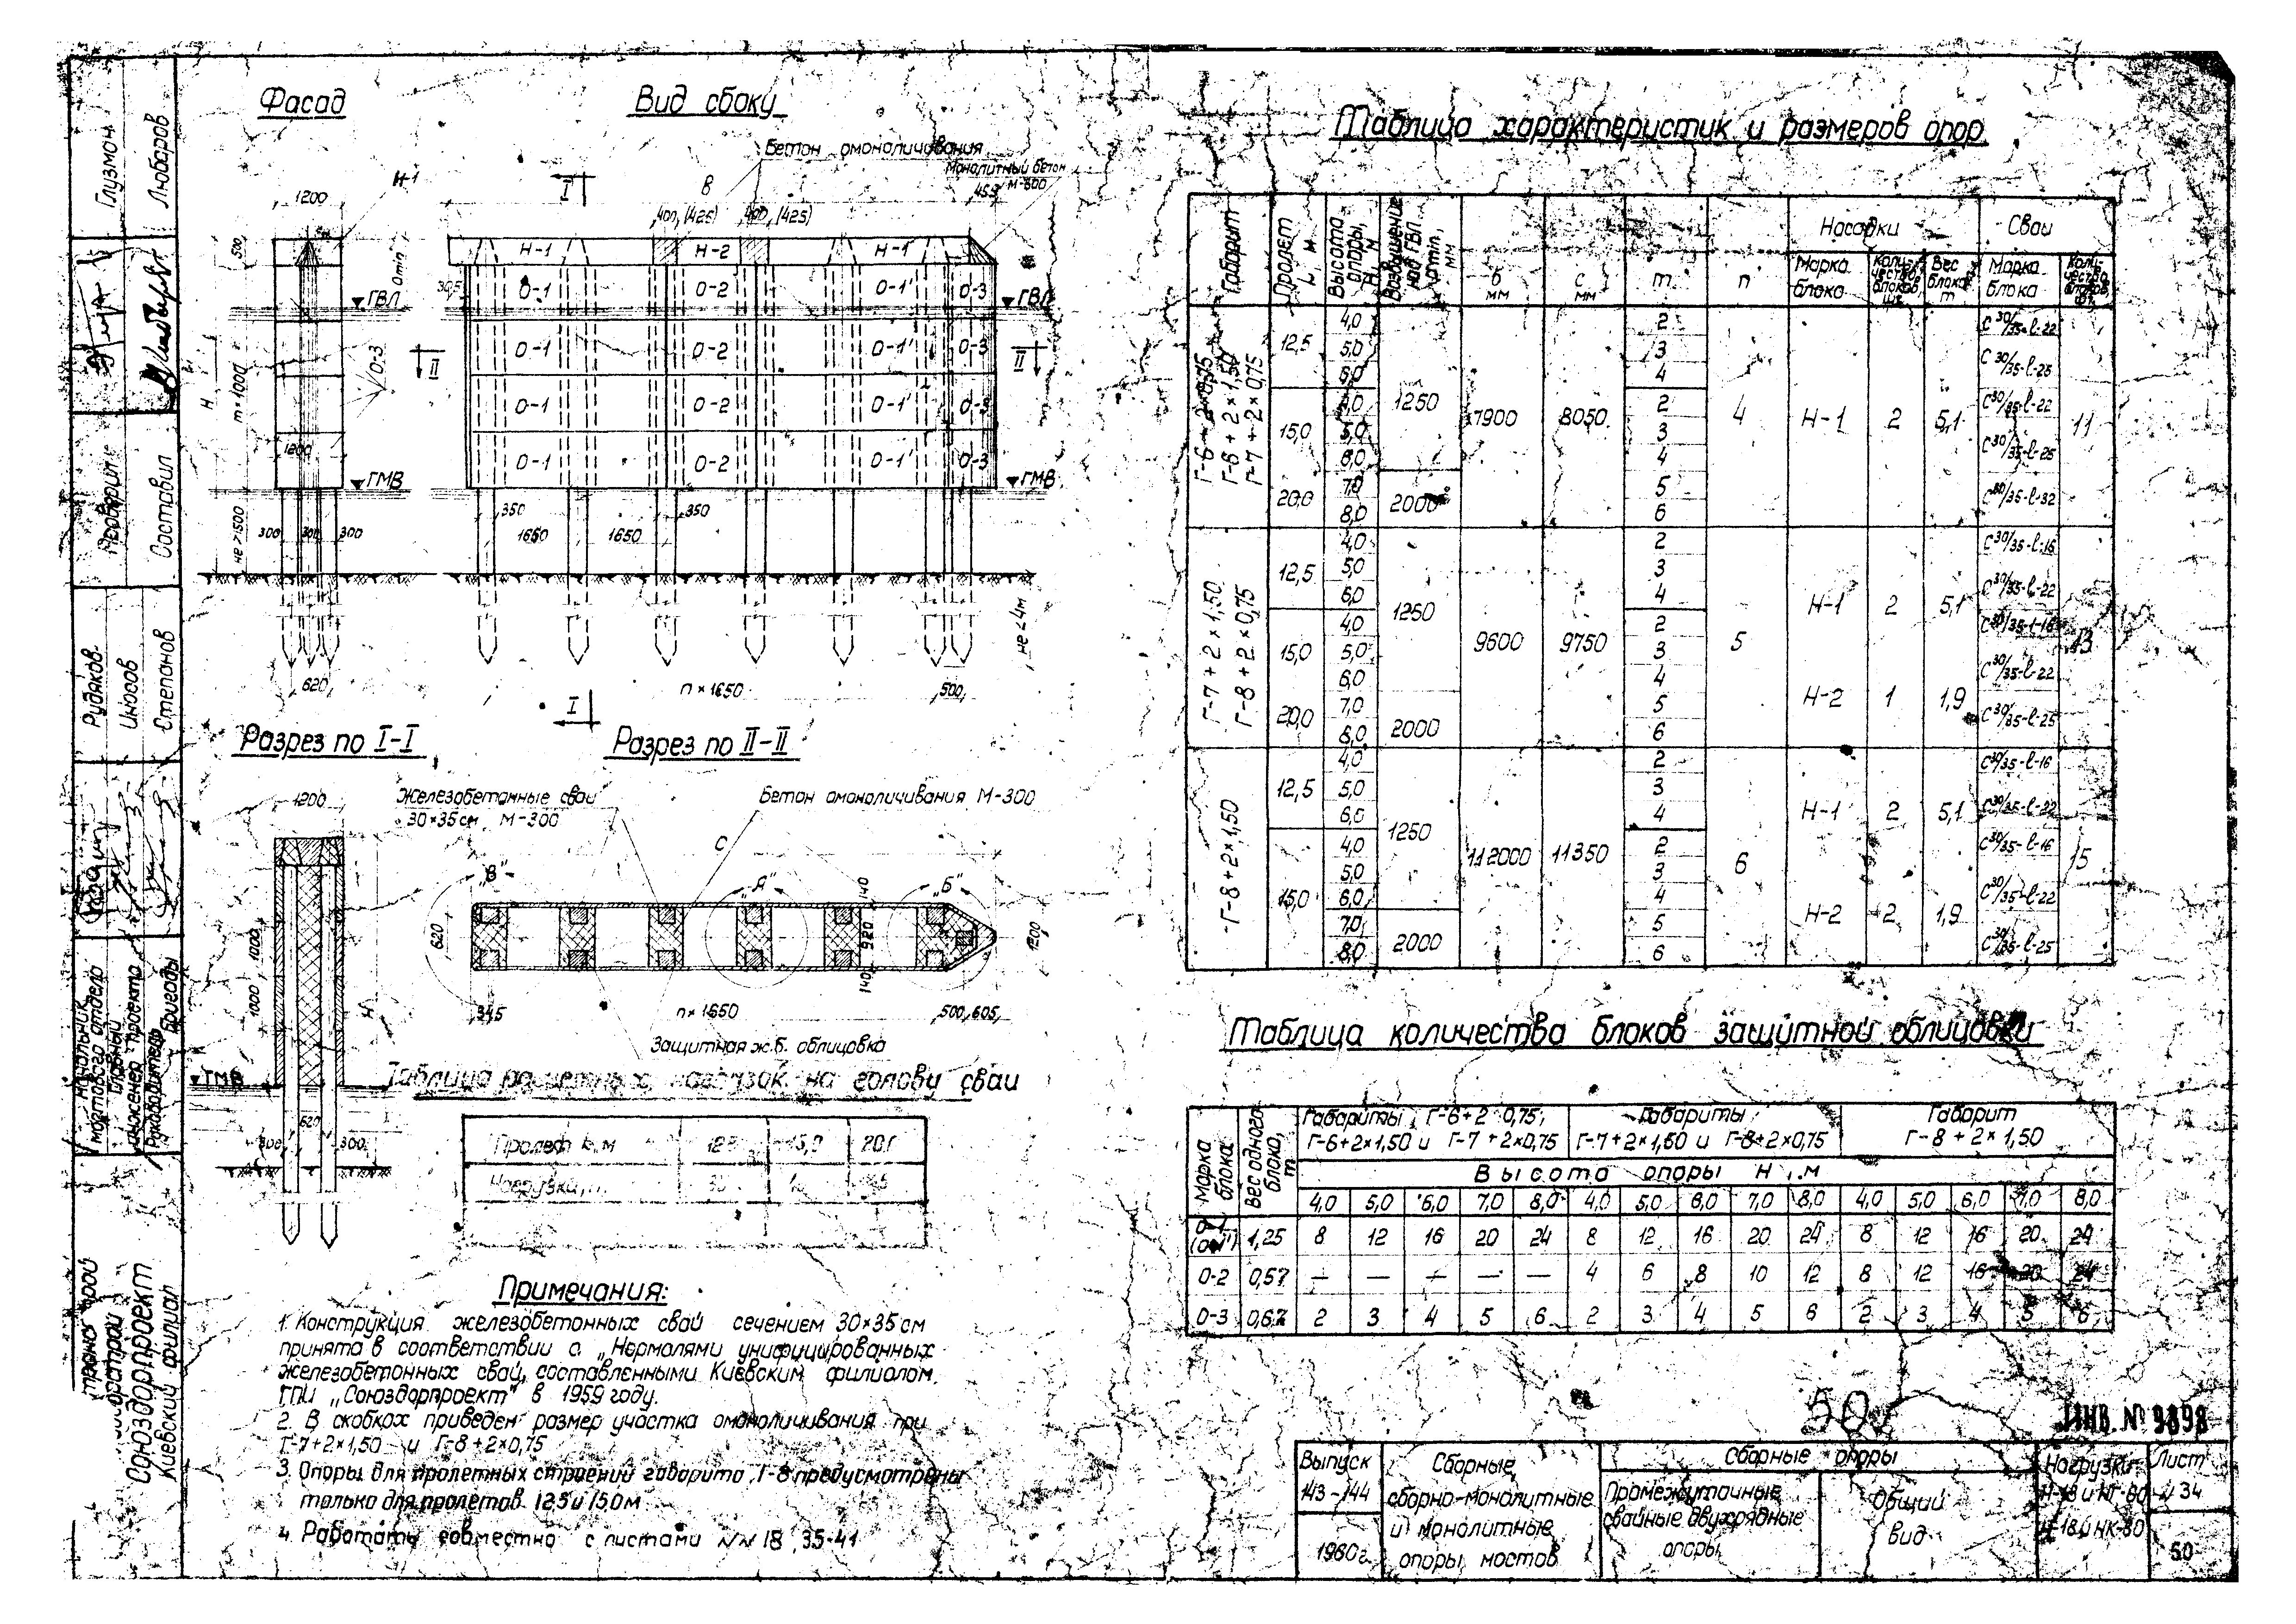 Фасад
Вид сбоку
Бетон омоноличивания
Монолитный бетон
М-300
Н-1
1200
500
0min
ГВЛ
О-3
m×1000
Н
1200
ГМВ
не >1500
300 300 300
620
В
400, (425) 400, (425)
455
Н-1 Н-2 Н-1'
305
О-1 О-2 О-1' О-3
ГВЛ
О-1 О-2 О-1' О-3
О-1 О-2 О-1' О-3
О-1 О-2 О-1' О-3
ГМВ
I
II
II
350 350
1650 1650
не < 4м
n×1650 500
I
Разрез по I-I
Разрез по II-II
1200
1000
1000
Н
ГМВ
620
300 300
Железобетонные сваи
30×35см М-300
Бетон омоноличивания М-300
С
„В"
„Я"
„Б"
620
140
920
140
1200
345 n×1650 500 605
Защитная ж.б. облицовка
Таблица расчетных нагрузок на голову сваи
Пролет L, м 15,0
Нагрузки, т
Примечания:
1. Конструкция железобетонных свай сечением 30×35см
принята в соответствии с „Нормалями унифицированных
железобетонных свай, составленными Киевским филиалом
ГПИ „Союздорпроект" в 1959 году.
2. В скобках приведен размер участка омоноличивания при
Г-7+2×1,50 и Г-8+2×0,75
3. Опоры для пролетных строений габарита Г-8 предусмотрены
только для пролетов 12,5 и 15,0м
4. Работать совместно с листами №№ 18, 35-41
Таблица характеристик и размеров опор.
Габарит
Пролет L, м
Высота опоры, Н, м
Возвышение над ГВЛ 0min, мм
в мм
с мм
m
n
Насадки Сваи
Марка блока
Количество блоков шт.
Вес блока т
Марка блока
Количество блоков, шт.
Г-6+2×0,75
Г-6+2×1,50
Г-7+2×0,75
12,5 4,0 5,0 6,0
15,0 4,0 5,0 6,0
20,0 7,0 8,0
1250
2000
7900 8050
2 3 4 2 3 4 5 6
4 Н-1 2 5,1
С30/35-ℓ-22
С30/35-ℓ-25
С30/35-ℓ-22
С30/35-ℓ-25
С30/35-ℓ-32
11
Г-7+2×1,50
Г-8+2×0,75
12,5 4,0 5,0 6,0
15,0 4,0 5,0 6,0
20,0 7,0 8,0
1250
2000
9600 9750
2 3 4 2 3 4 5 6
5
Н-1 2 5,1
Н-2 1 1,9
С30/35-ℓ-16
С30/35-ℓ-22
С30/35-ℓ-16
С30/35-ℓ-22
С30/35-ℓ-25
13
Г-8+2×1,50
12,5 4,0 5,0 6,0
15,0 4,0 5,0 6,0 7,0 8,0
1250
2000
112000 11350
2 3 4 2 3 4 5 6
6
Н-1 2 5,1
Н-2 2 1,9
С30/35-ℓ-16
С30/35-ℓ-22
С30/35-ℓ-16
С30/35-ℓ-22
С30/35-ℓ-25
15
Таблица количества блоков защитной облицовки
Марка блока
Вес одного блока, т
Габариты: Г-6+2×0,75;
Г-6+2×1,50 и Г-7+2×0,75
Габариты:
Г-7+2×1,50 и Г-8+2×0,75
Габарит
Г-8+2×1,50
Высота опоры Н, м
4,0 5,0 6,0 7,0 8,0 4,0 5,0 6,0 7,0 8,0 4,0 5,0 6,0 7,0 8,0
О-1 (О-1') 1,25 8 12 16 20 24 8 12 16 20 24 8 12 16 20 24
О-2 0,57 — — — — — 4 6 8 10 12 8 12 16 20 24
О-3 0,67 2 3 4 5 6 2 3 4 5 6 2 3 4 5 6
50
ИНВ. № 9898
Выпуск
143-144
1960г.
Сборные,
сборно-монолитные
и монолитные
опоры мостов
Сборные опоры
Промежуточные
свайные двухрядные
опоры
Общий
вид
Нагрузки
Н-18 и НК-80
Лист
№ 34
50
Глузман
Любаров
Проверил
Составил
Рудяков
Иносов
Степанов
Начальник
мостового отдела
Главный
инженер проекта
Руководитель
бригады
Союздорпроект
Киевский филиал